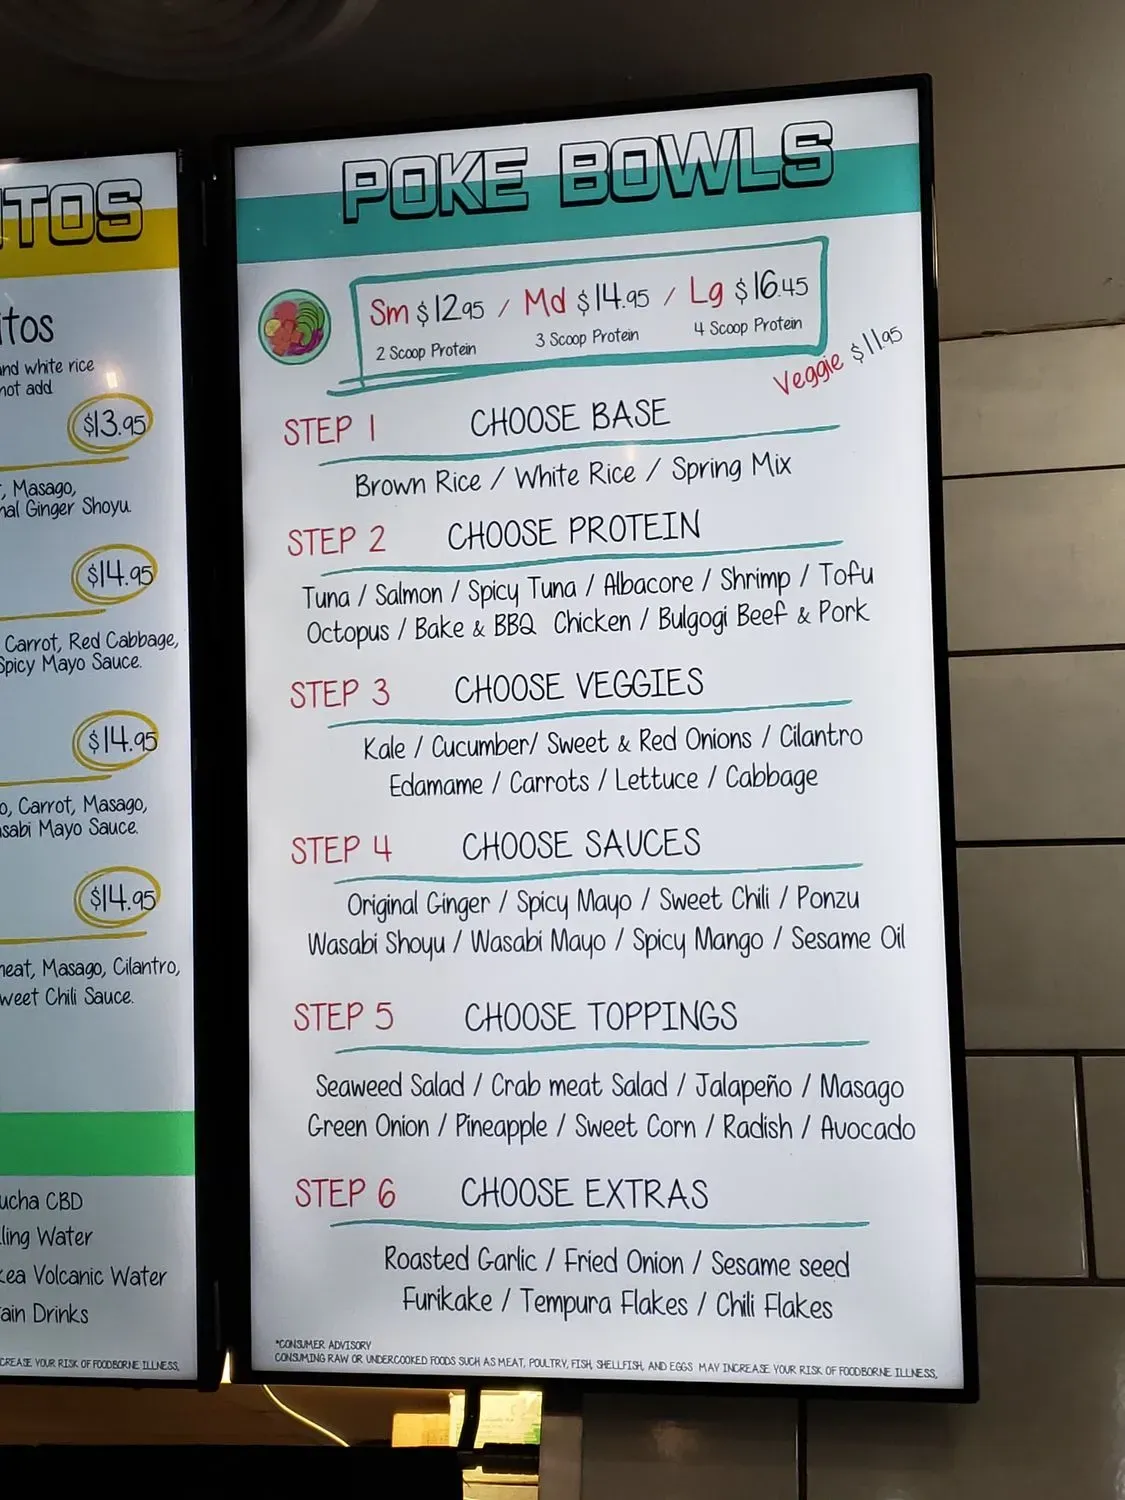 TOS
tos
and white rice
not add
$13.95
, Masago,
nal Ginger Shoyu.
$14.95
Carrot, Red Cabbage,
Spicy Mayo Sauce.
$14.95
o, Carrot, Masago,
asabi Mayo Sauce.
$14.95
neat, Masago, Cilantro,
weet Chili Sauce.
ucha CBD
ling Water
kea Volcanic Water
ain Drinks
CREASE YOUR RISK OF FOODBORNE ILLNESS,
POKE BOWLS
Sm $12.95 / Md $14.95 / Lg $16.45
2 Scoop Protein 3 Scoop Protein 4 Scoop Protein
Veggie $11.95
STEP 1 CHOOSE BASE
Brown Rice / White Rice / Spring Mix
STEP 2 CHOOSE PROTEIN
Tuna / Salmon / Spicy Tuna / Albacore / Shrimp / Tofu
Octopus / Bake & BBQ Chicken / Bulgogi Beef & Pork
STEP 3 CHOOSE VEGGIES
Kale / Cucumber/ Sweet & Red Onions / Cilantro
Edamame / Carrots / Lettuce / Cabbage
STEP 4 CHOOSE SAUCES
Original Ginger / Spicy Mayo / Sweet Chili / Ponzu
Wasabi Shoyu / Wasabi Mayo / Spicy Mango / Sesame Oil
STEP 5 CHOOSE TOPPINGS
Seaweed Salad / Crab meat Salad / Jalapeño / Masago
Green Onion / Pineapple / Sweet Corn / Radish / Avocado
STEP 6 CHOOSE EXTRAS
Roasted Garlic / Fried Onion / Sesame seed
Furikake / Tempura Flakes / Chili Flakes
*CONSUMER ADVISORY
CONSUMING RAW OR UNDERCOOKED FOODS SUCH AS MEAT, POULTRY, FISH, SHELLFISH, AND EGGS MAY INCREASE YOUR RISK OF FOODBORNE ILLNESS,